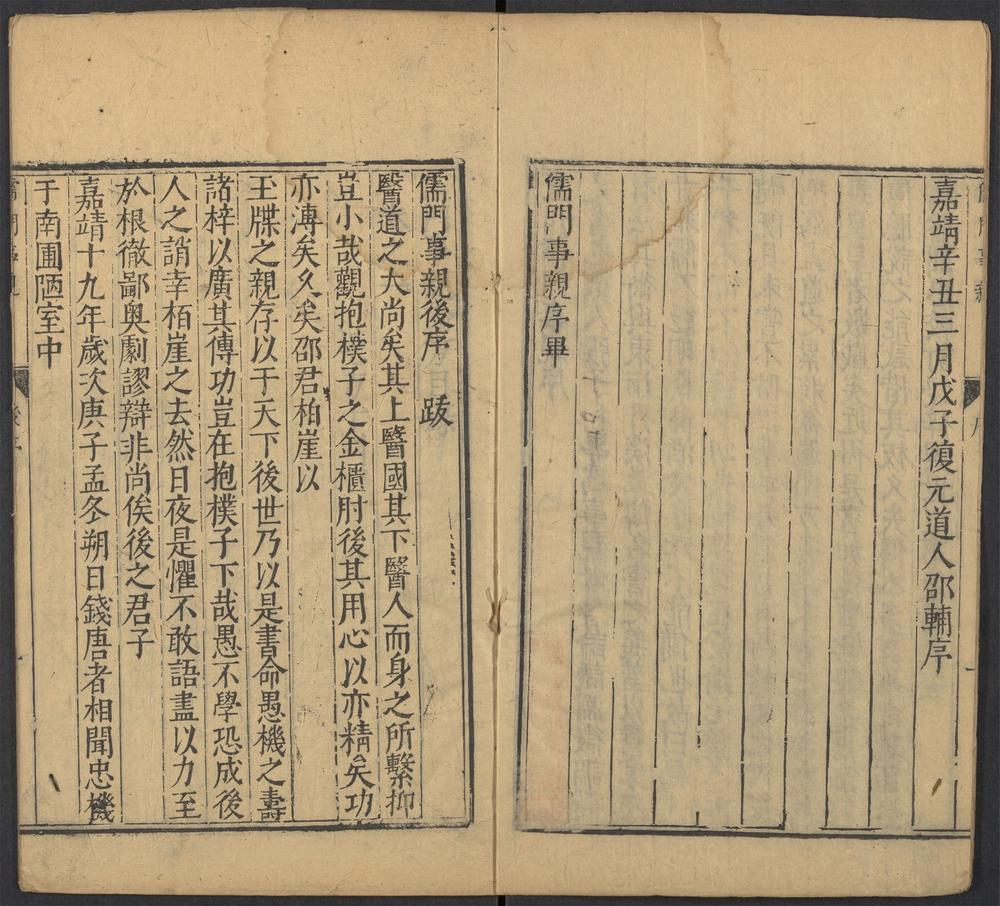 嘉靖辛丑三月戊子復元道人邵輔序
儒門事親序畢
儒門事親後序 跋
醫道之大尚矣其上醫國其下醫人而身之所繫抑
豈小哉觀抱樸子之金櫃肘後其用心以亦精矣功
亦溥矣久矣邵君柏崖以
王牒之親存以于天下後世乃以是書命愚機之壽
諸梓以廣其傳功豈在抱樸子下哉愚不學恐成後
人之誚幸栢崖之去然日夜是懼不敢語盡以力至
於根徹鄙奧劇謬辯非尚俟後之君子
嘉靖十九年歲次庚子孟冬朔日錢唐者相聞忠機
于南圃陋室中